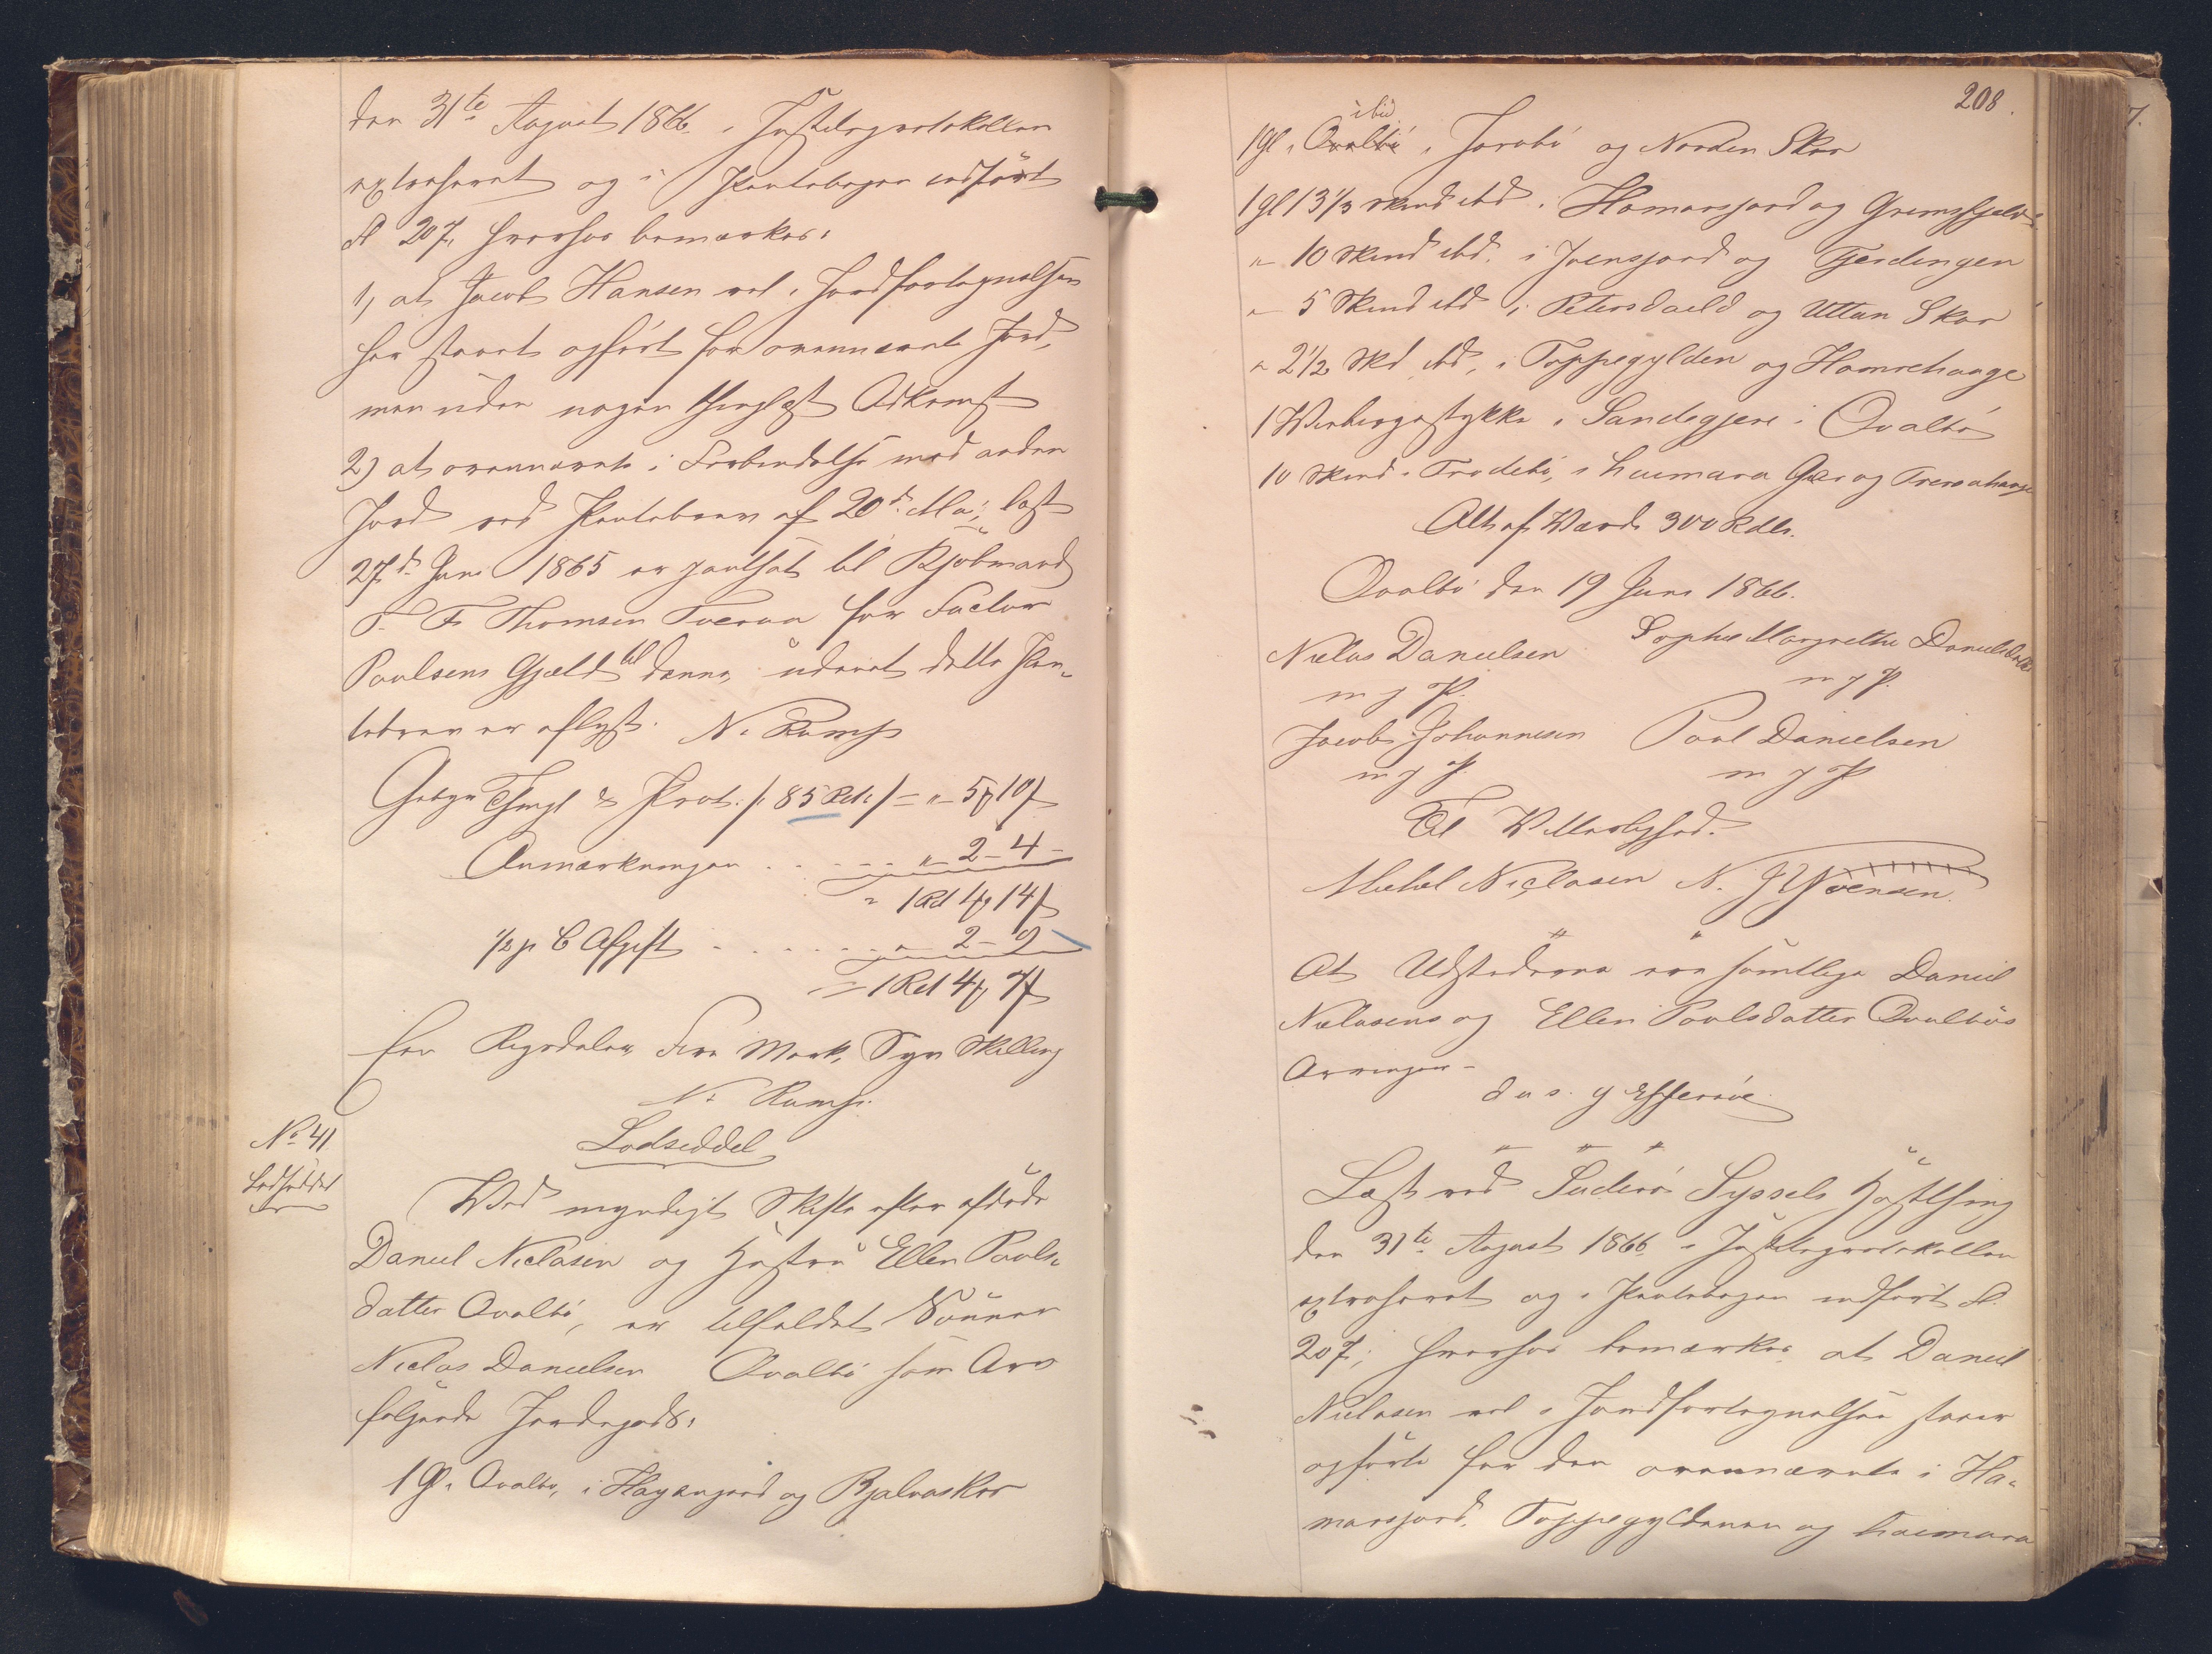 den 31te August 1866 i Justitsprotokollen
extraheret og i Pantebogen indført
Fol 207, hvorhos bemærkes:
1, at Jacob Hansen vel i Jordfortegnelsen
har staaet opført for ovennævnte Jord,
men uden nogen thinglæst Adkomst
2) at ovennævnte i Forbindelse med anden
Jord ved Pantebrev af 20de Mai, læst
27de Juni 1865 er pantsat til Kjøbmand
T. F. Thomsen Tveraa for Factor
Poulsens Gjæld til denne, uden at dette Pan-
tebrev er aflyst. N. Rump
Gebyr Thingl & Prot. /: 85 Rd :/ = " - 5 10
Anmærkningen . . . . . " - 2 - 4 -
" 1 Rd 4 14
1/2 p C Afgift . . . . . . . " - 2 - 9
= 1 Rd 4 7
Een Rigsdaler, Fire Mark, Syv Skilling
N. Rump.
No 41
Lodseddel
Lodseddel
Ved myndigt Skifte efter afdøde
Daniel Niclasen og Hustru Ellen Pouls-
datter Qvalbø, er tilfaldet Sønnen
Niclas Danielsen Qvalbø som Arv
følgende Jordegods:
1 G. Qvalbø, i Hagangard og Bjalvaskor
208.
ibid
1 Gl. i Qvalbø i Jorobø og Norden Skor
1 gl 13 1/3 skind ibd. i Hamarsjord og Gremsfjeld
" 10 Skind ibd. i Joensjord og Fjerdengen
" 5 Skind ibd i Petersdaeld og Uttan Skor
" 2 1/2 Skd ibd, i Toppegylden og Hamrehauge
1 Werbergestykke i Sandegjere i Qvalbø
10 Skind i Frodebø, i Huemara Gær og
Alt af Værdi 300 Rdlr.
Qvalbø den 19 Juni 1866.
Niclas Danielsen Sophie Margrethe Danielsdatter
m j P. m j P.
Jacob Johannesen Poul Danielsen
m j P. m j P
Til Vitterlighed.
Michel Niclasen N. J Joensen
At Udstederne ere samtlige Daniel
Niclasens og Ellen Poulsdatter Qvalbøs
Arvinger -
d u s. G Effersøe.
Læst ved Suderø Syssels Høstthing
den 31te August 1866 i Justitsprotokollen
extraheret og i Pantebogen indført Fol.
207; hvorhos bemærkes at Daniel
Niclasen vel i Jordfortegnelsen staaer
opført for den ovennævnte i Ha-
marsjord, Toppegyldenen og Huemara